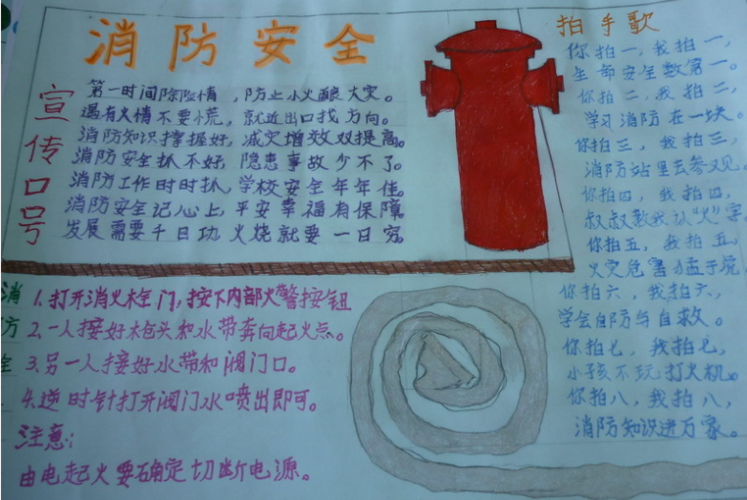 消防安全
宣传口号
第一时间除险情,防止小火酿大灾。
遇有火情不要慌,就近出口找方向。
消防知识掌握好,减灾增效双提高。
消防安全抓不好,隐患事故少不了。
消防工作时时抓,学校安全年年佳。
消防安全记心上,平安幸福有保障
发展需要千日功,火烧就要一日穷。
拍手歌
你拍一,我拍一,
生命安全数第一。
你拍二,我拍二,
学习消防在一块。
你拍三,我拍三,
消防站里去参观。
你拍四,我拍四,
叔叔教我认“火”字
你拍五,我拍五,
火灾危害猛于虎
你拍六,我拍六,
学会自防与自救。
你拍七,我拍七,
小孩不玩打火机。
你拍八,我拍八,
消防知识进万家。
消
方
全
1.打开消火栓门,按下内部火警按钮
2.一人接好枪头和水带奔向起火点。
3.另一人接好水带和阀门口。
4.逆时针打开阀门水喷出即可。
注意:
由电起火要确定切断电源。